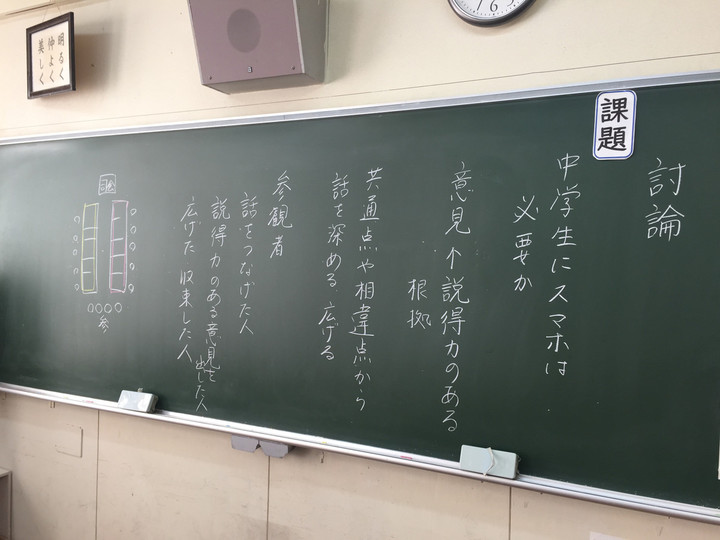 討論
課題
中学生にスマホは
必要か
意見↑説得力のある
根拠
共通点や相違点から
話を深める、広げる
参観者
話をつなげた人
説得力のある意見を出した人
広げた 収束した人
参
明るく
仲よく
美しく
6
7